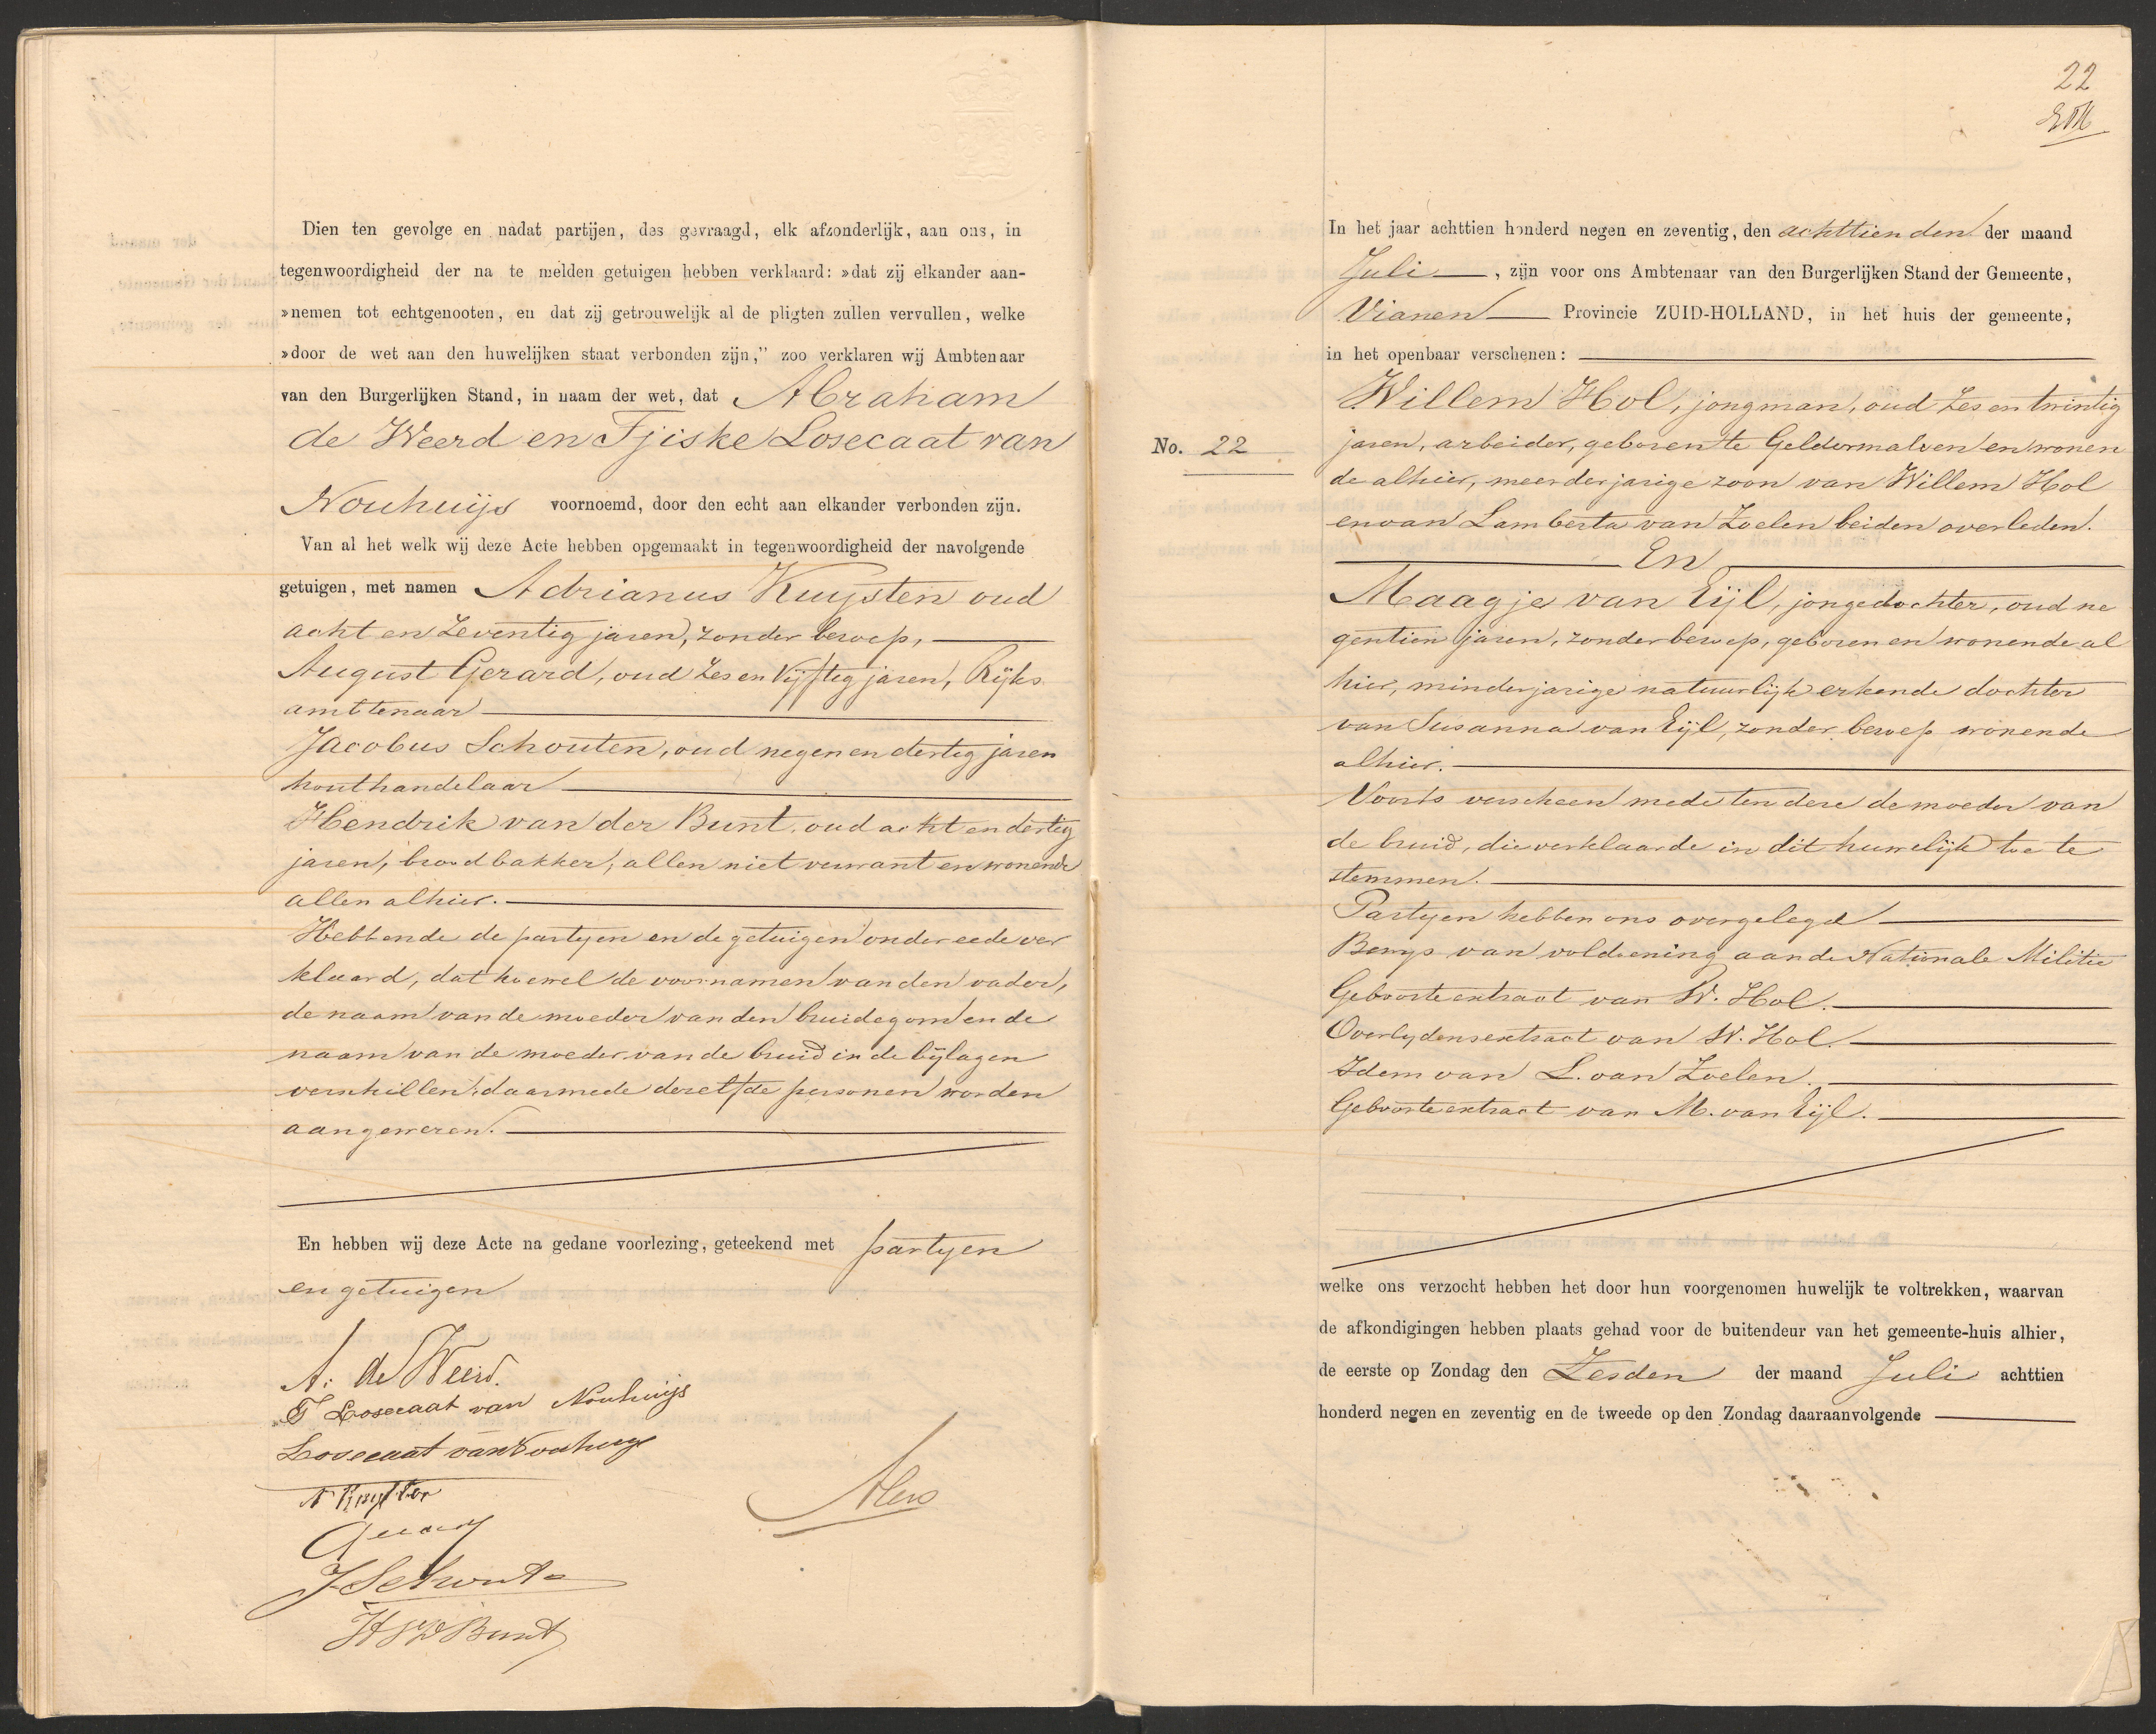 Dien ten gevolge en nadat partijen, des gevraagd, elk afzonderlijk, aan ons, in
tegenwoordigheid der na te melden getuigen hebben verklaard: »dat zij elkander aan-
»nemen tot echtgenooten, en dat zij getrouwelijk al de pligten zullen vervullen, welke
»door de wet aan den huwelijken staat verbonden zijn,” zoo verklaren wij Ambtenaar
van den Burgerlijken Stand, in naam der wet, dat Abraham
de Weerd en Tjiske Losecaat van
Nouhuijs voornoemd, door den echt aan elkander verbonden zijn.
Van al het welk wij deze Acte hebben opgemaakt in tegenwoordigheid der navolgende
getuigen, met namen Adrianus Kuijsten oud
acht en Zeventig jaren, zonder beroep,
August Gerard, oud Zes en Vijftig jaren, Rijks
amttenaar
Jacobus Schouten, oud negen en dertig jaren
houthandelaar
Hendrik van der Bunt, oud acht en dertig
jaren, broodbakker, allen niet verwant en wonende
allen alhier.
Hebbende de partyen en de getuigen onder eede ver
klaard, dat hoewel de voornamen van den vader,
de naam van de moeder van den bruidegom en de
naam van de moeder van de bruid in de bijlagen
verschillen, daarmede dezelfde personen worden
aangewezen.
En hebben wij deze Acte na gedane voorlezing, geteekend met partyen
en getuigen
A. de Weerd.
T Losecaat van Nouhuijs
Losecaat van Nouhuijs
A Kuysten
Gerard
J Schouten
H VD Bunt
22
In het jaar achttien honderd negen en zeventig, den achttienden der maand
Juli, zijn voor ons Ambtenaar van den Burgerlijken Stand der Gemeente,
Vianen Provincie ZUID-HOLLAND, in het huis der gemeente,
in het openbaar verschenen:
Willem Hol, jongman, oud Zes en twintig
No. 22 jaren, arbeider, geboren te Geldermalsen en wonen
de alhier, meerderjarige zoon van Willem Hol
en van Lamberta van Zoelen beiden overleden.
En
Maagje van Eijl, jongedochter, oud ne
gentien jaren, zonder beroep, geboren en wonende al
hier, minderjarige natuurlijk erkende dochter
van Susanna van Eijl, zonder beroep wonende
alhier.
Voorts verscheen mede ten deze de moeder van
de bruid, die verklaarde in dit huwelijk toe te
stemmen.
Partyen hebben ons overgelegd
Bewys van voldoening aan de Nationale Militie
Geboorteextract van W. Hol.
Overlydensextract van W. Hol.
Idem van L. van Zoelen.
Geboorteextract van M. van Eijl.
welke ons verzocht hebben het door hun voorgenomen huwelijk te voltrekken, waarvan
de afkondigingen hebben plaats gehad voor de buitendeur van het gemeente-huis alhier,
de eerste op Zondag den Zesden der maand Juli achttien
honderd negen en zeventig en de tweede op den Zondag daaraanvolgende